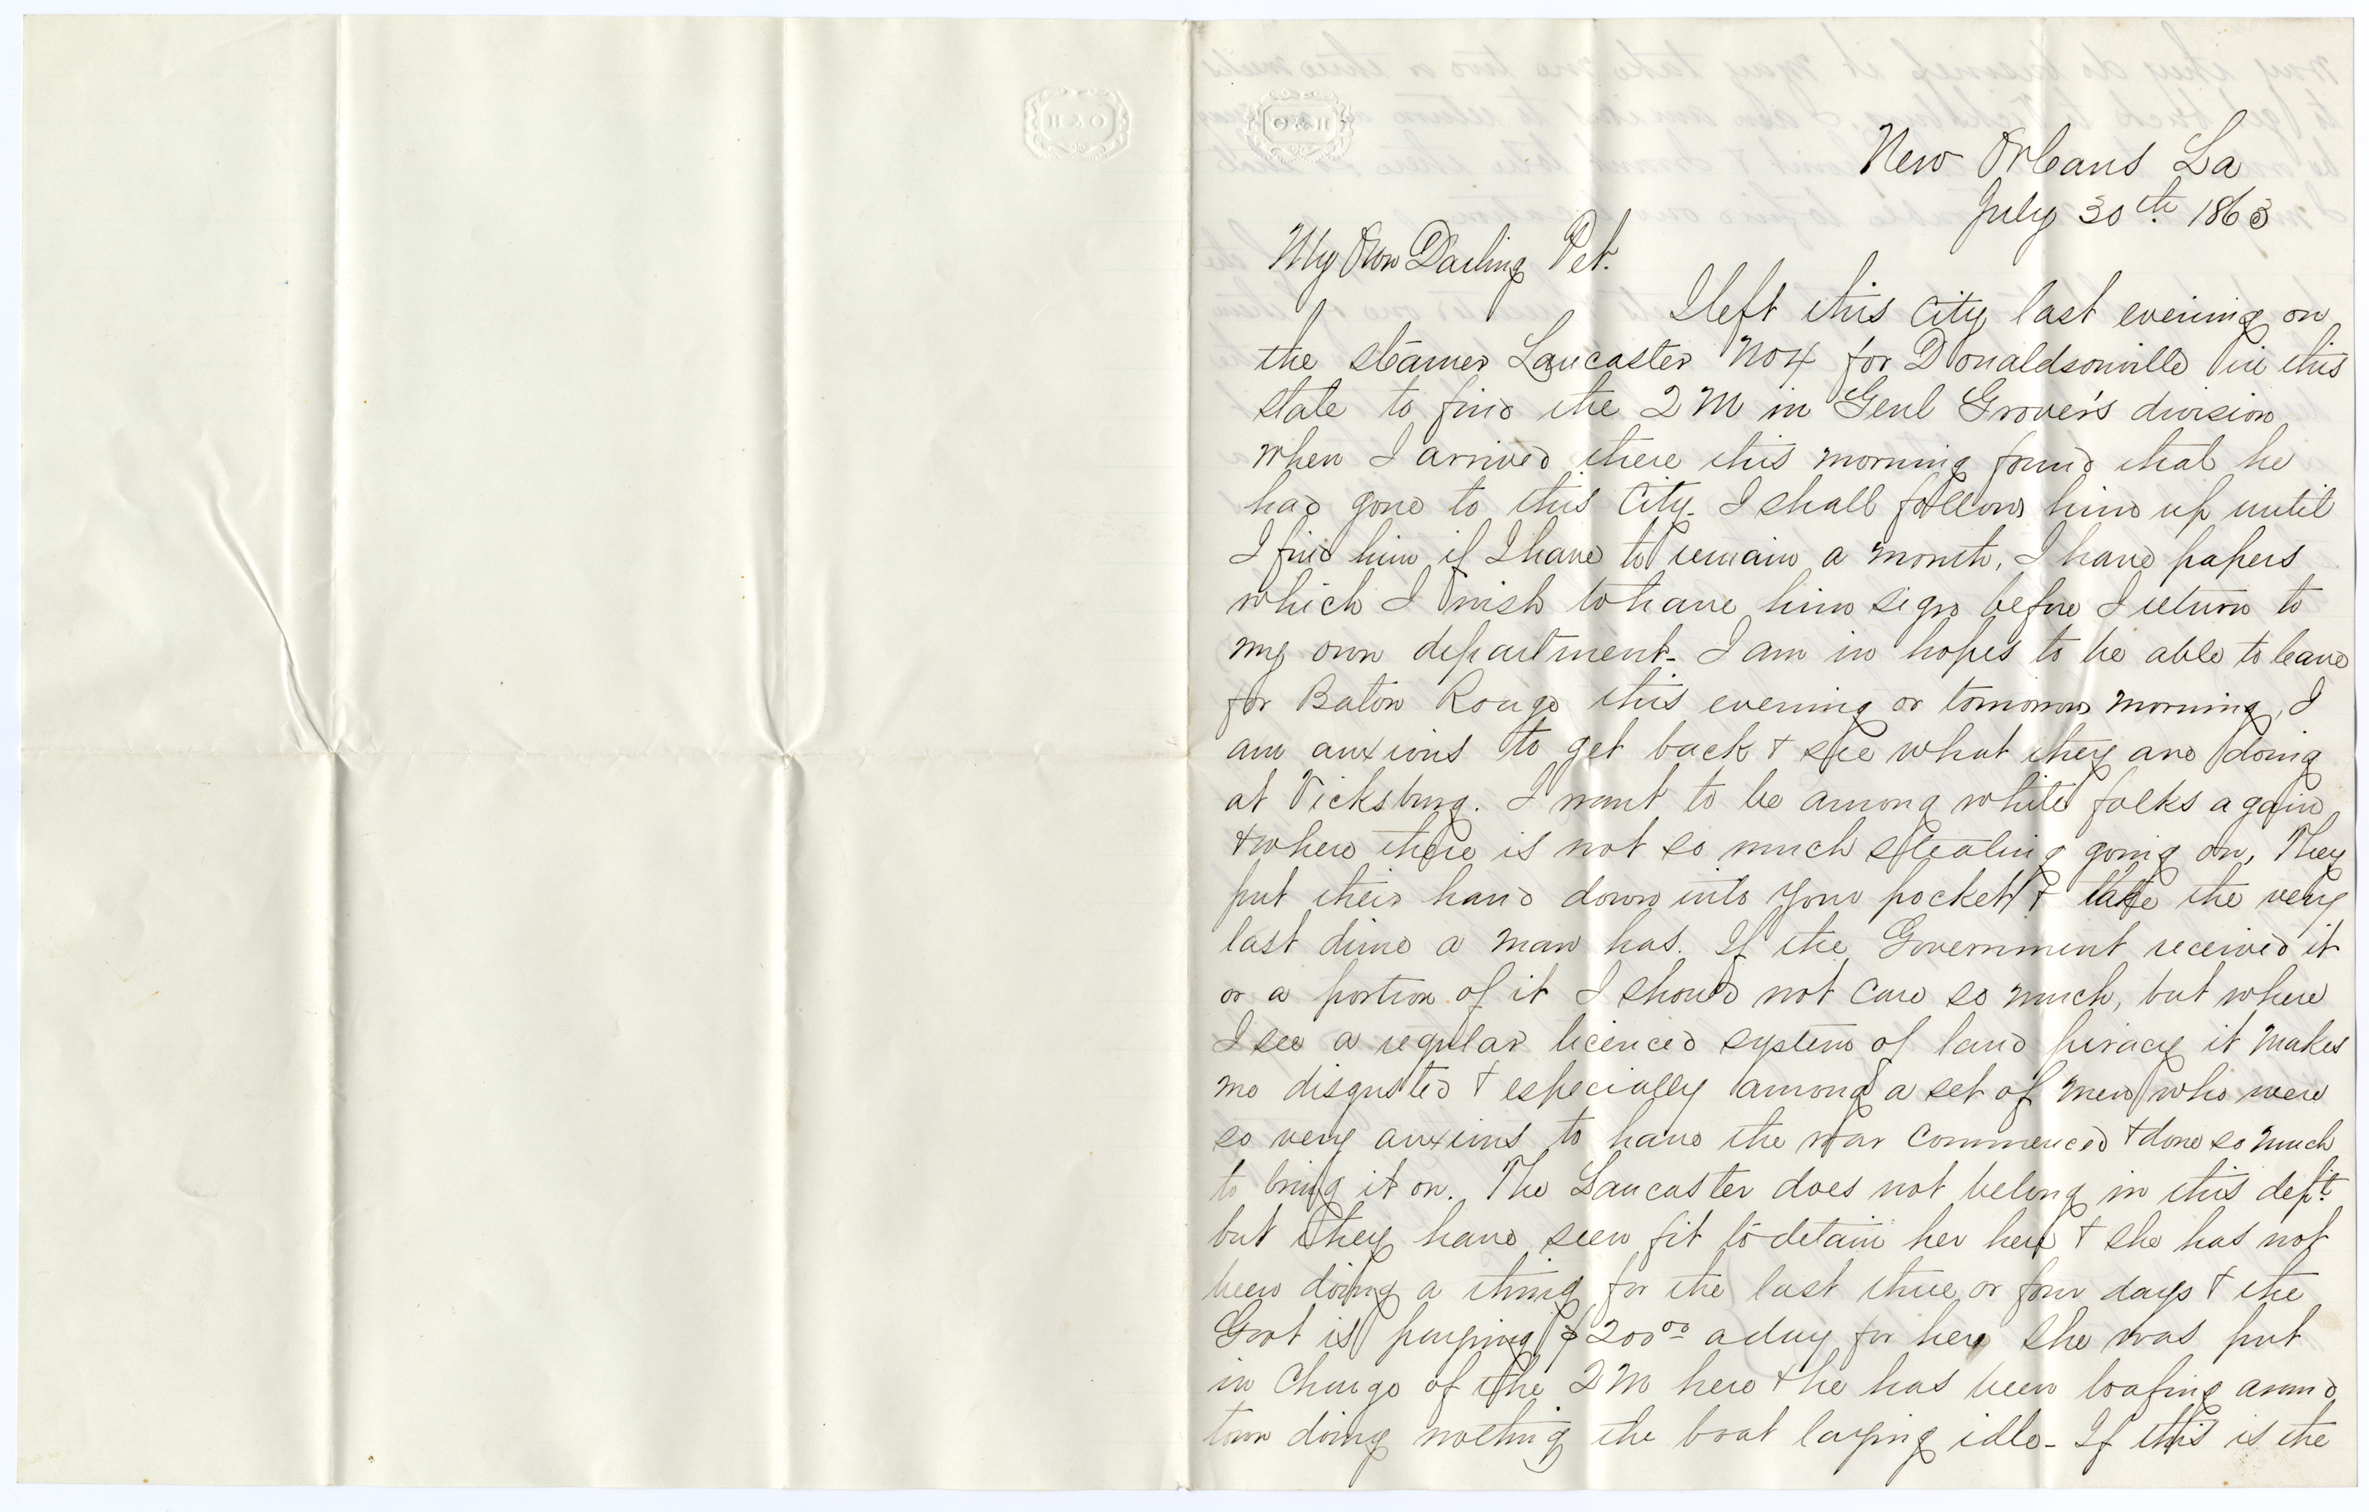 New Orleans La
July 30th 1863
My Own Darling Pet.
I left this City last evening on
the steamer Lancaster No 4 for Donaldsonville in this
state to find the Q M in Genl Grover's division
when I arrived there this morning found that he
had gone to this City. I shall follow him up until
I find him if I have to remain a month, I have papers
which I wish to have him sign before I return to
my own department- I am in hopes to be able to leave
for Baton Rouge this evening or tomorrow morning, I
am anxious to get back & see what they are doing
at Vicksburg. I want to be among white folks again
& where there is not so much stealing going on, They
put their hand down into your pocket & take the very
last dime a man has. If the Government received it
or a portion of it I should not care so much, but where
I see a regular licenced system of land piracy it makes
me disgusted & especially among a set of men who were
so very anxious to have the war commenced & done so much
to bring it on. The Lancaster does not belong in this dept.
but they have seen fit to detain her here & she has not
been doing a thing for the last three or four days & the
Govt is paying $200 00 a day for her, She was put
in charge of the Q M here & he has been loafing around
town doing nothing the boat laying idle- If this is the
O & H